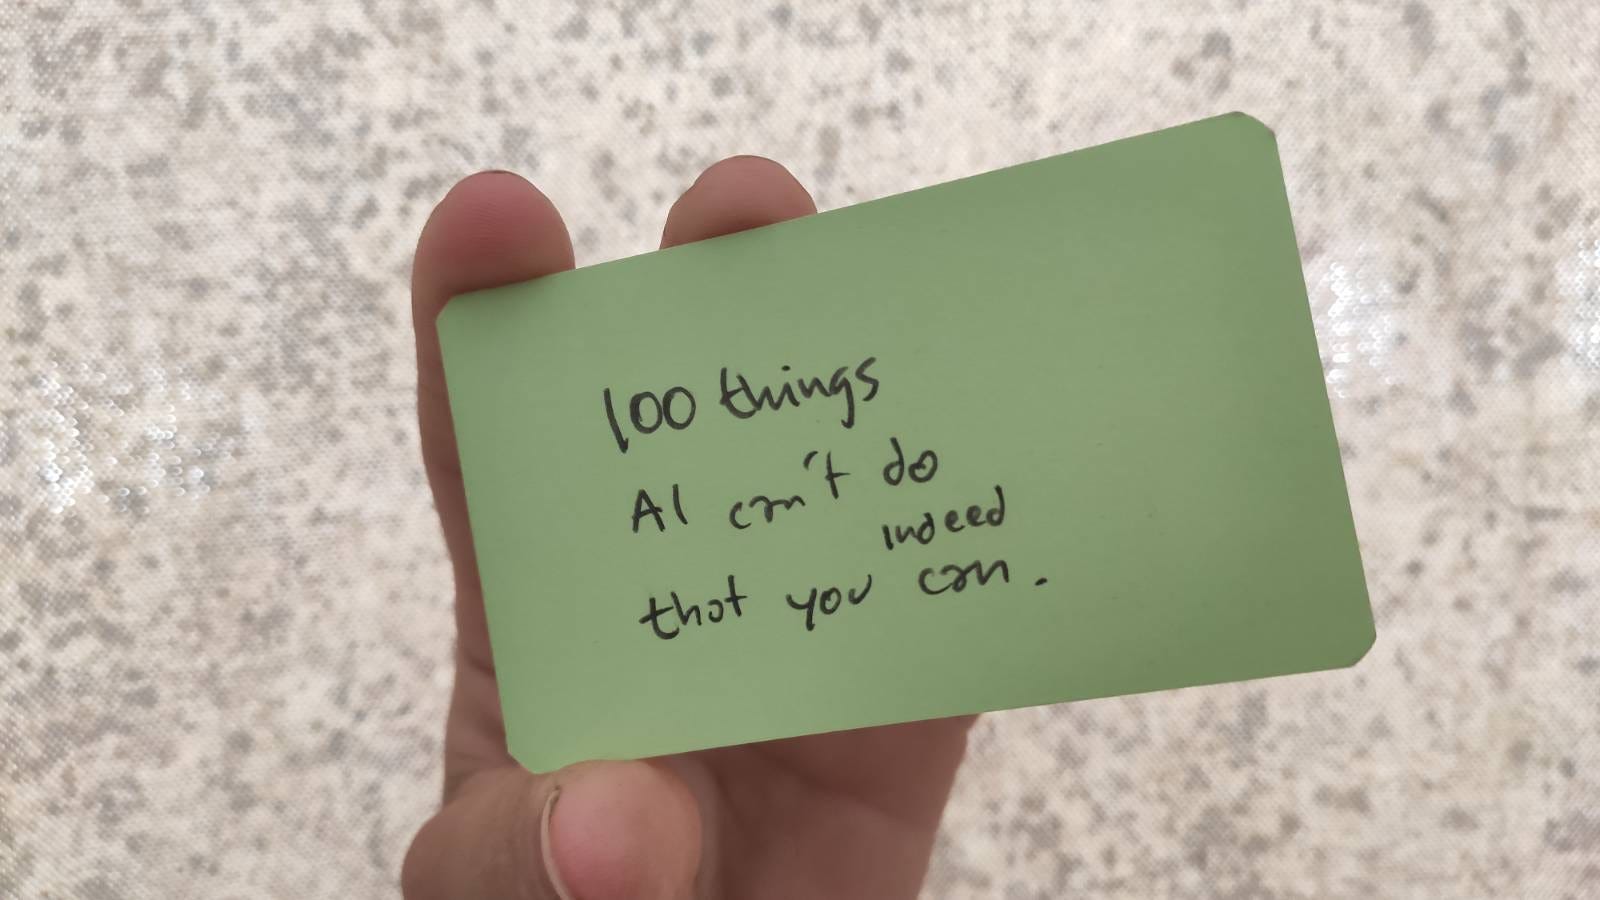 100 things
AI can't do
indeed
that you can.